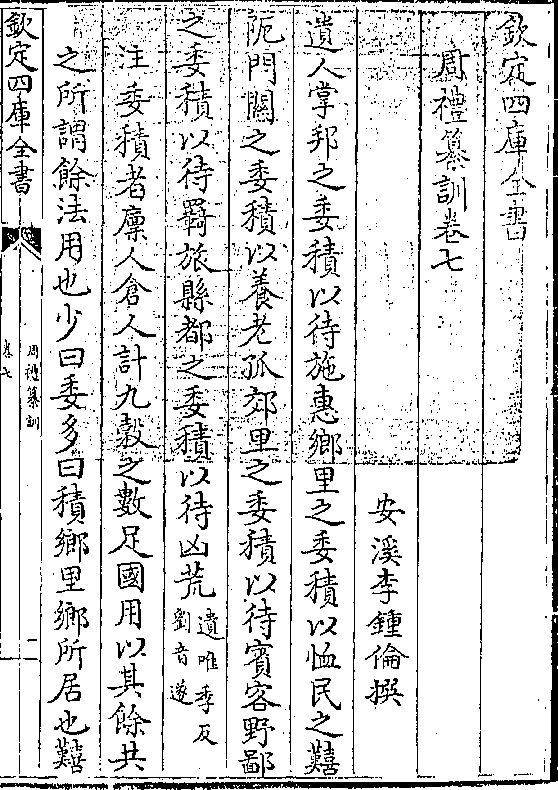 欽定四庫全書
周禮纂訓卷七
安溪李鍾倫撰
遺人掌邦之委積以待施惠鄉里之委積以恤民之囏
阨門關之委積以養老孤郊里之委積以待賓客野鄙
之委積以待羇旅縣都之委積以待凶荒
遺唯季反
劉音遂
注委積者廩人倉人計九穀之數足國用以其餘共
之所謂餘法用也少曰委多曰積鄉里鄉所居也囏
欽定四庫全書
周禮纂訓
卷七
一